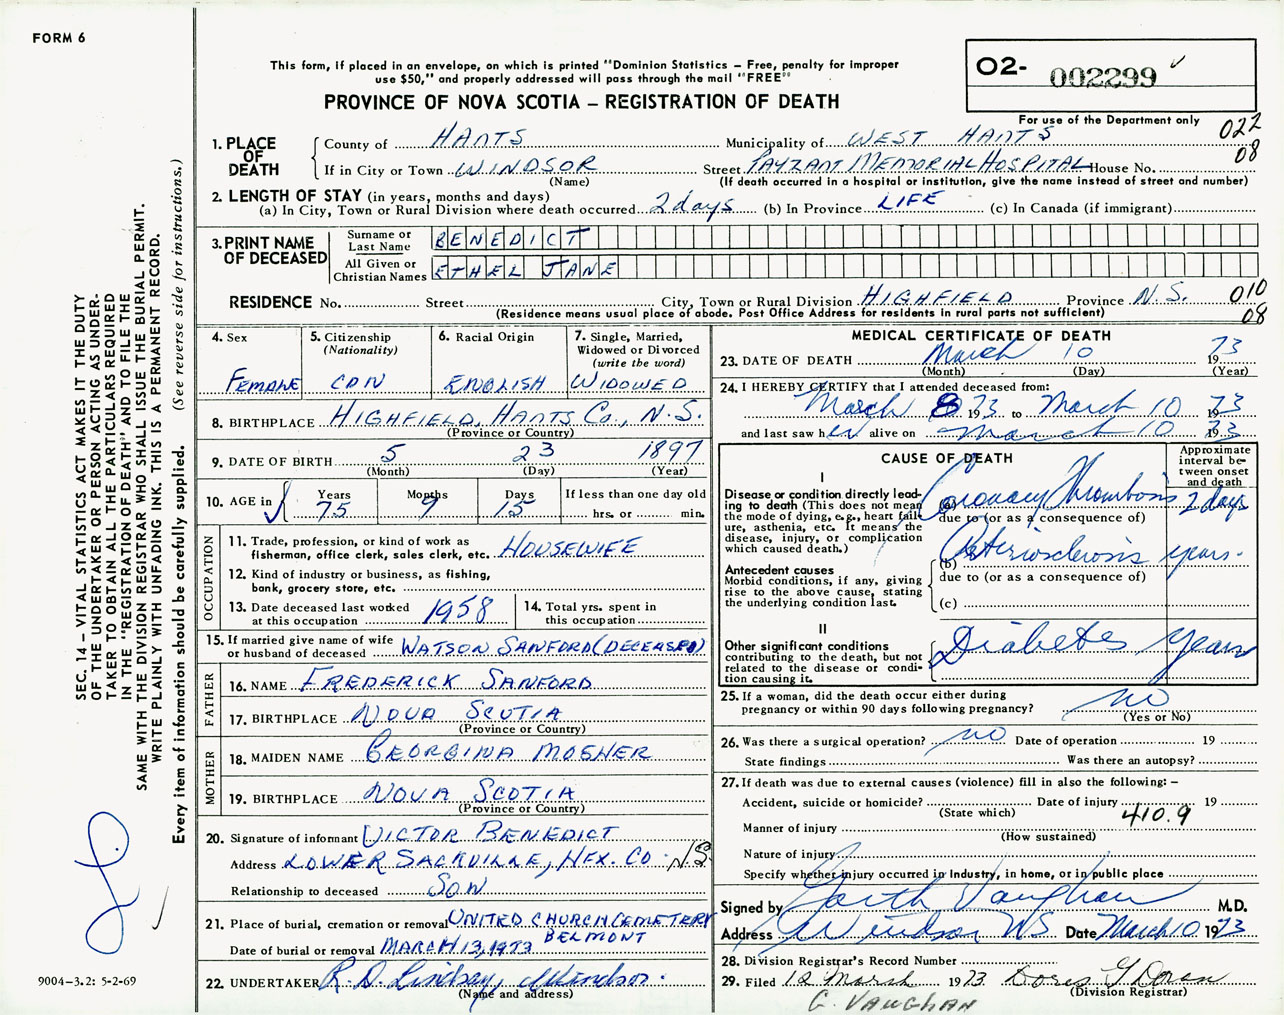 FORM 6
This form, if placed in an envelope, on which is printed "Dominion Statistics – Free, penalty for improper
use $50," and properly addressed will pass through the mail "FREE"
PROVINCE OF NOVA SCOTIA – REGISTRATION OF DEATH
02- 002299
For use of the Department only
022
08
1. PLACE OF DEATH
County of HANTS Municipality of WEST HANTS
If in City or Town WINDSOR Street PAYZANT MEMORIAL HOSPITAL House No.
(Name) (If death occurred in a hospital or institution, give the name instead of street and number)
2. LENGTH OF STAY (in years, months and days)
(a) In City, Town or Rural Division where death occurred 2 days (b) In Province LIFE (c) In Canada (if immigrant)
3. PRINT NAME OF DECEASED
Surname or Last Name BENEDICT
All Given or Christian Names ETHEL JANE
RESIDENCE No. Street City, Town or Rural Division HIGHFIELD Province N.S. 010
(Residence means usual place of abode. Post Office Address for residents in rural parts not sufficient) 08
4. Sex FEMALE
5. Citizenship (Nationality) CDN
6. Racial Origin ENGLISH
7. Single, Married, Widowed or Divorced (write the word) WIDOWED
8. BIRTHPLACE HIGHFIELD, HANTS CO., N.S.
(Province or Country)
9. DATE OF BIRTH 5 23 1897
(Month) (Day) (Year)
10. AGE in Years 75 Months 9 Days 15 If less than one day old
hrs. or min.
OCCUPATION
11. Trade, profession, or kind of work as
fisherman, office clerk, sales clerk, etc. HOUSEWIFE
12. Kind of industry or business, as fishing,
bank, grocery store, etc.
13. Date deceased last worked
at this occupation 1958
14. Total yrs. spent in
this occupation
15. If married give name of wife
or husband of deceased WATSON SANFORD (DECEASED)
FATHER
16. NAME FREDERICK SANFORD
17. BIRTHPLACE NOVA SCOTIA
(Province or Country)
MOTHER
18. MAIDEN NAME GEORGINA MOSHER
19. BIRTHPLACE NOVA SCOTIA
(Province or Country)
20. Signature of informant VICTOR BENEDICT
Address LOWER SACKVILLE, HFX. CO. N.S.
Relationship to deceased SON
21. Place of burial, cremation or removal UNITED CHURCH CEMETERY
BELMONT
Date of burial or removal MARCH 13, 1973
22. UNDERTAKER R. D. Lindsay, Windsor.
(Name and address)
MEDICAL CERTIFICATE OF DEATH
23. DATE OF DEATH March 10 1973
(Month) (Day) (Year)
24. I HEREBY CERTIFY that I attended deceased from:
March 8 1973 to March 10 1973
and last saw her alive on March 10 1973
CAUSE OF DEATH
Approximate interval between onset and death
I
Disease or condition directly lead-
ing to death (This does not mean
the mode of dying, e.g., heart fail-
ure, asthenia, etc. It means the
disease, injury, or complication
which caused death.)
(a) Coronary Thrombosis 2 days
due to (or as a consequence of)
(b) Arteriosclerosis years.
Antecedent causes
Morbid conditions, if any, giving
rise to the above cause, stating
the underlying condition last.
due to (or as a consequence of)
(c)
II
Other significant conditions
contributing to the death, but not
related to the disease or condi-
tion causing it.
Diabetes years
25. If a woman, did the death occur either during
pregnancy or within 90 days following pregnancy? no
(Yes or No)
26. Was there a surgical operation? no Date of operation 19
State findings Was there an autopsy?
27. If death was due to external causes (violence) fill in also the following: –
Accident, suicide or homicide? Date of injury 19
(State which)
410.9
Manner of injury
(How sustained)
Nature of injury
Specify whether injury occurred in industry, in home, or in public place
Signed by Garth Vaughan M.D.
Address Windsor NS Date March 10 1973
28. Division Registrar's Record Number
29. Filed 12 March 1973 Doris G
(Division Registrar)
G. VAUGHAN
SEC. 14 – VITAL STATISTICS ACT MAKES IT THE DUTY
OF THE UNDERTAKER OR PERSON ACTING AS UNDER-
TAKER TO OBTAIN ALL THE PARTICULARS REQUIRED
IN THE "REGISTRATION OF DEATH" AND TO FILE THE
SAME WITH THE DIVISION REGISTRAR WHO SHALL ISSUE THE BURIAL PERMIT.
WRITE PLAINLY WITH UNFADING INK. THIS IS A PERMANENT RECORD.
Every item of information should be carefully supplied. (See reverse side for instructions.)
9004–3.2: 5-2-69